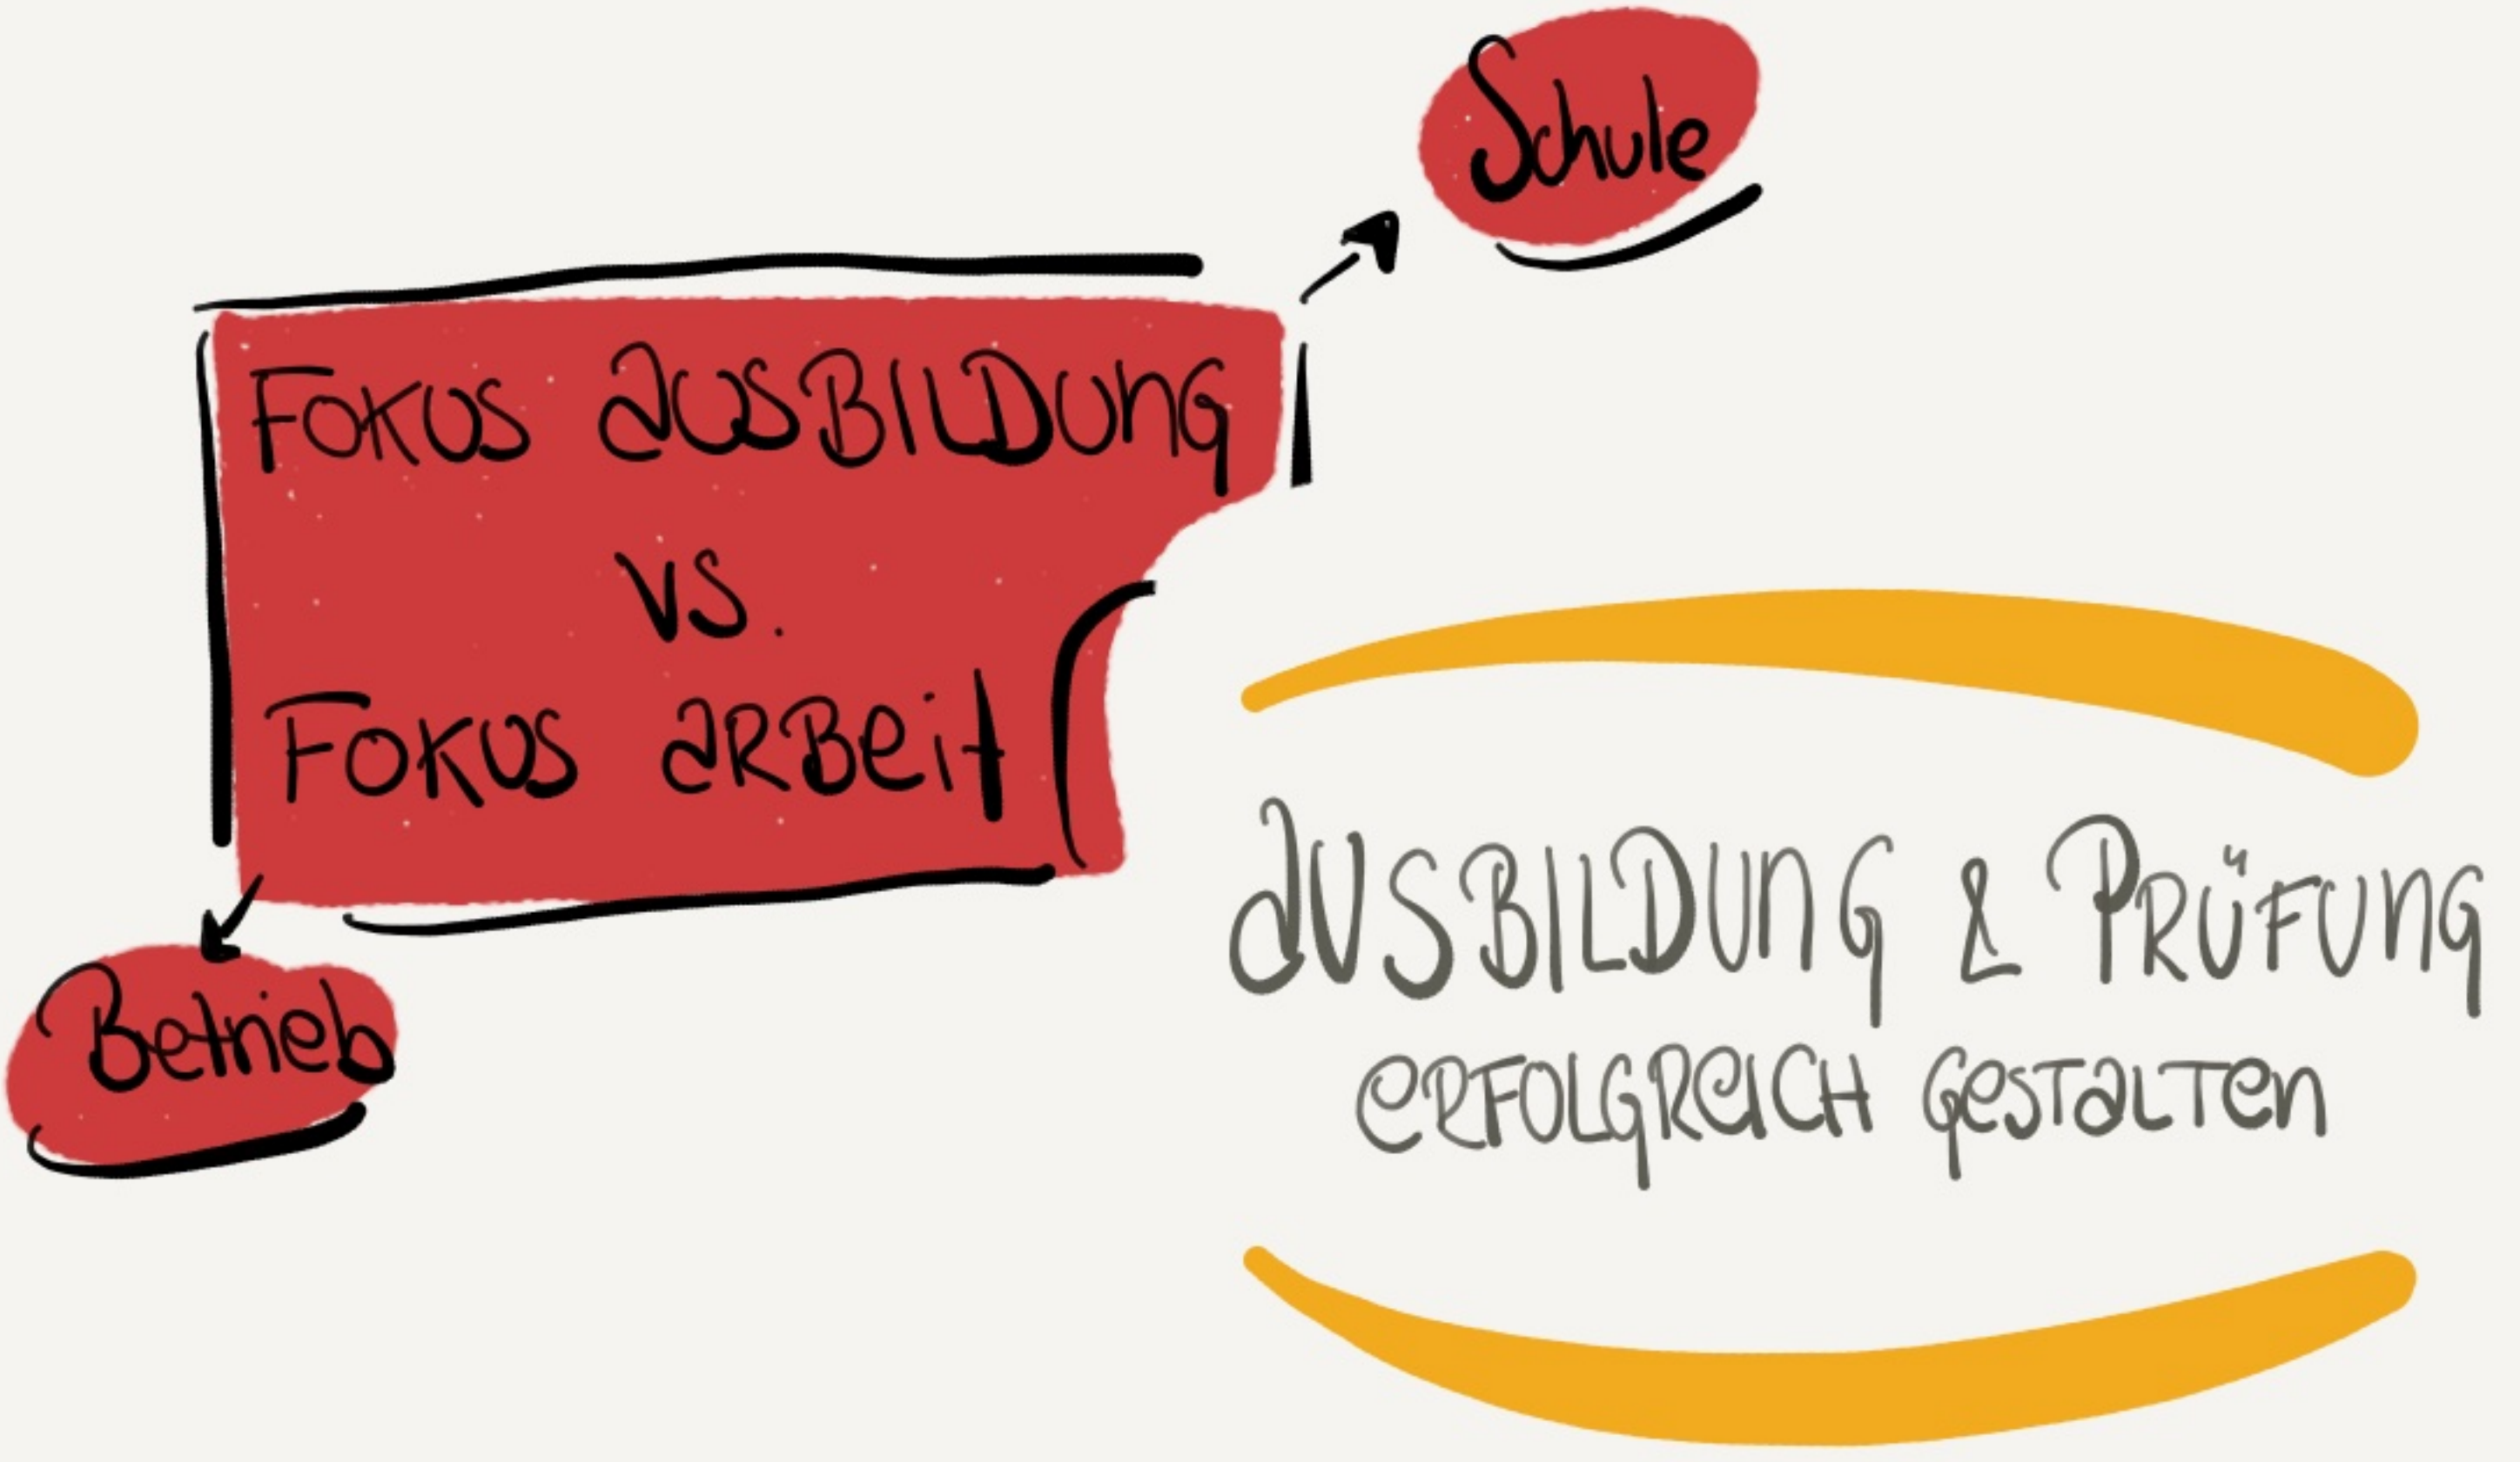 Schule
Fokus Ausbildung
vs.
Fokus Arbeit
Betrieb
Ausbildung & Prüfung
erfolgreich gestalten